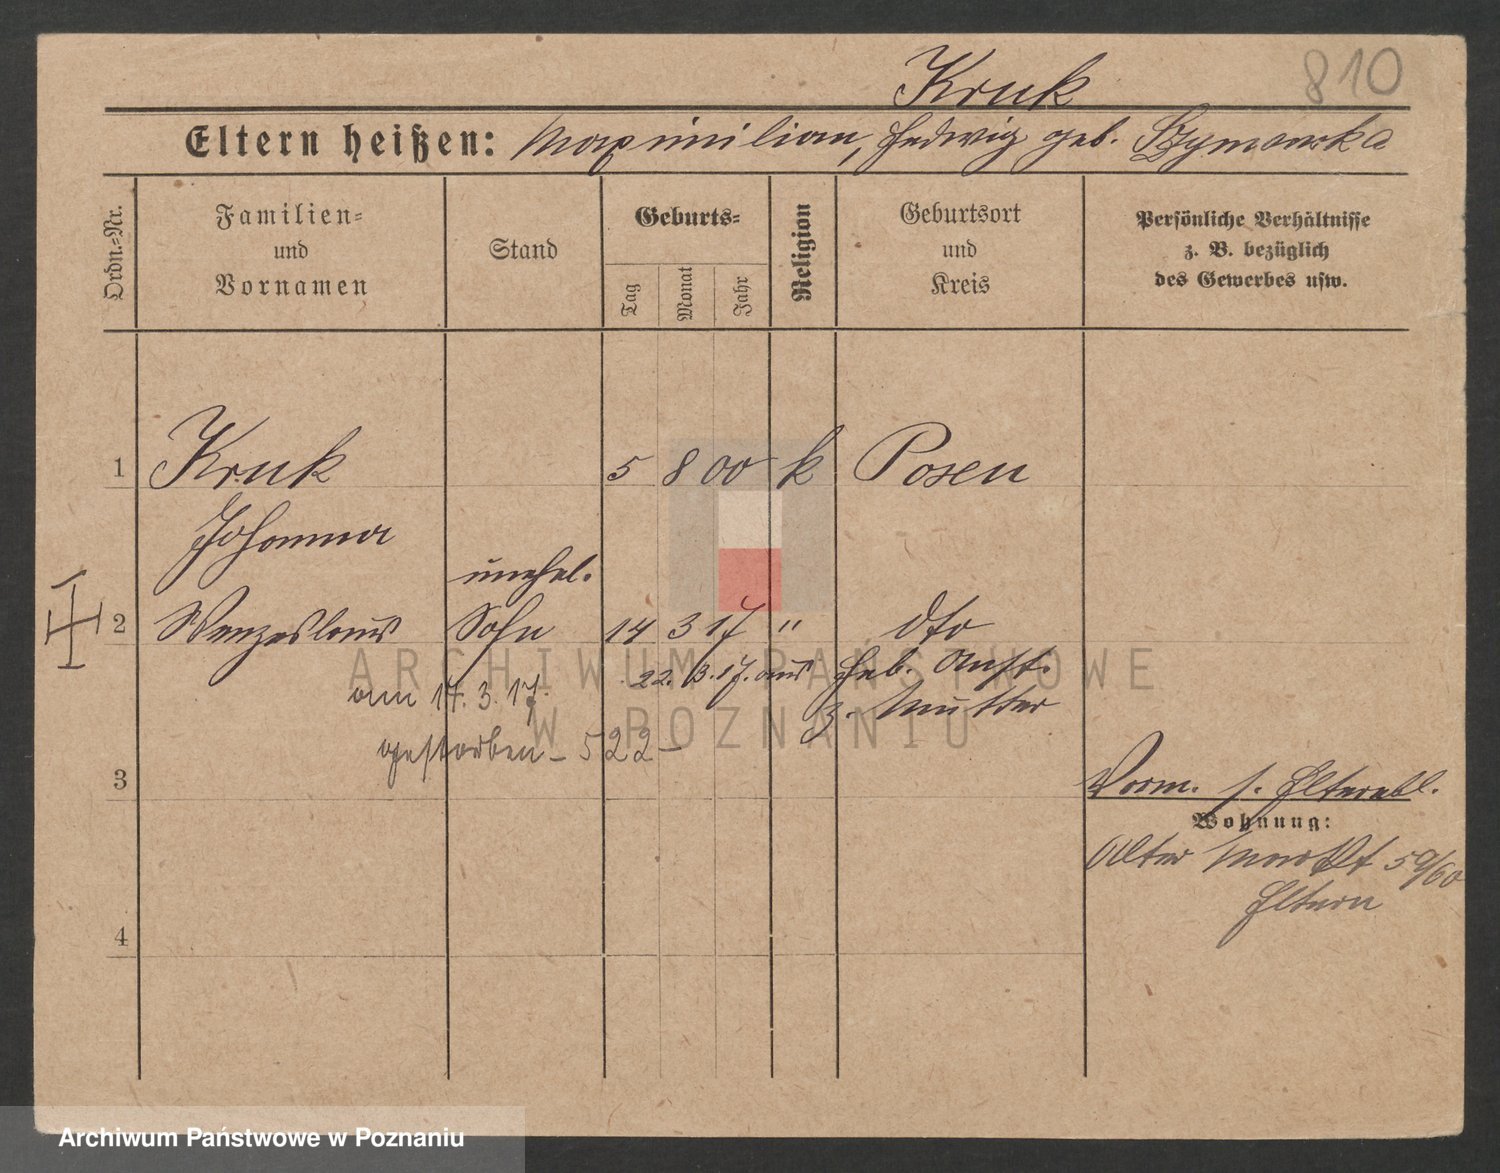 Kruk
810
Eltern heißen: Maximilian, Hedwig geb. Szymanska
Ordn.-Nr.
Familien-
und
Vornamen
Stand
Geburts-
Tag
Monat
Jahr
Religion
Geburtsort
und
Kreis
Persönliche Verhältnisse
z. B. bezüglich
des Gewerbes usw.
1 Kruk 5 8 00 k Posen
Johanna
unehel.
2 Wenzeslaus Sohn 14 3 17 " dto
22. 3. 17. aus Geb. Anst.
z. Mutter
am 17. 3. 17.
gestorben – 522 –
3
Vorm. s. Elternbl.
Wohnung:
Alter Markt 59/60
Eltern
4
ARCHIWUM PAŃSTWOWE
W POZNANIU
Archiwum Państwowe w Poznaniu